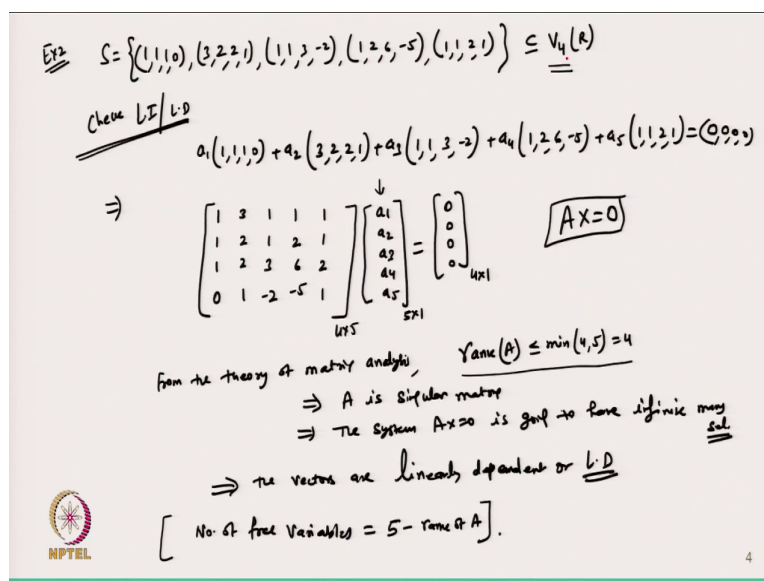 Ex2 S={(1,1,1,0),(3,2,2,1),(1,1,3,-2),(1,2,6,-5),(1,1,2,1)} ⊆ V4(R)
Check LI/L.D
a1(1,1,1,0)+a2(3,2,2,1)+a3(1,1,3,-2)+a4(1,2,6,-5)+a5(1,1,2,1)=(0,0,0,0)
⇒ [1 3 1 1 1] [a1] = [0]
[1 2 1 2 1] [a2] [0] Ax=0
[1 2 3 6 2] [a3] [0]
[0 1 -2 -5 1]4x5 [a4] [0]4x1
[a5]5x1
From the theory of matrix analysis, rank(A) ≤ min(4,5)=4
⇒ A is singular matrix
⇒ The system Ax=0 is going to have infinite many sol
⇒ the vectors are linearly dependent or L.D
[No. of free variables = 5 - rank of A].
NPTEL
4